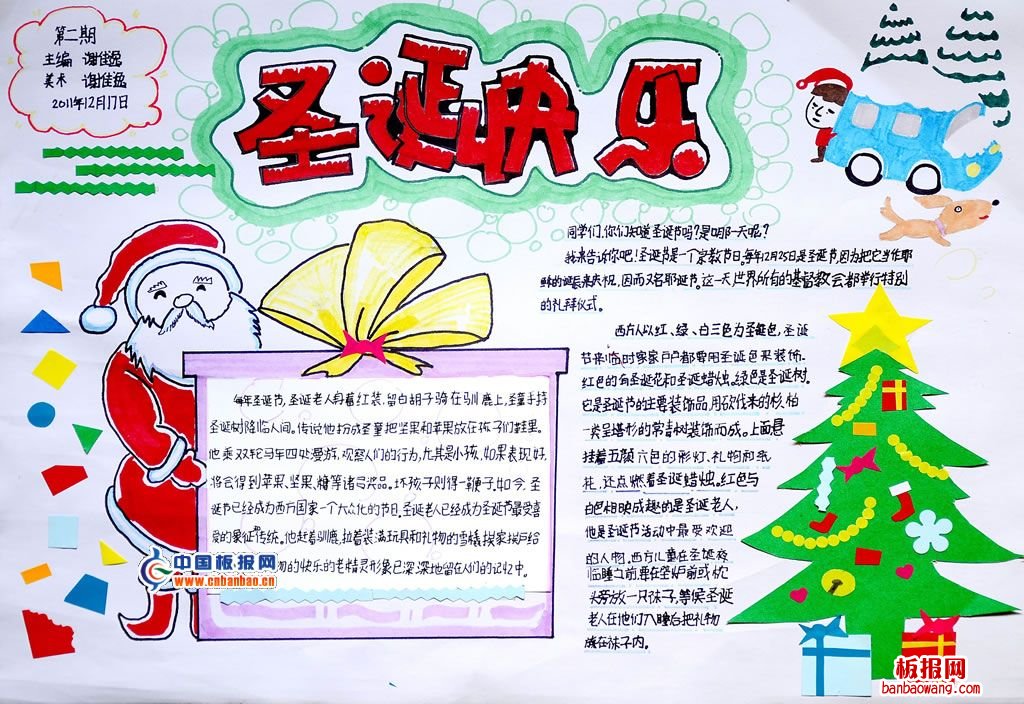 第二期
主编 谢佳逸
美术 谢佳逸
2011年12月17日
圣诞快乐
同学们,你们知道圣诞节吗?是哪一天呢?
我来告诉你吧!圣诞节是一个宗教节日,每年12月25日是圣诞节,因为把它当作耶
稣的诞辰来庆祝,因而又名耶诞节。这一天世界所有的基督教会都举行特别
的礼拜仪式。
西方人以红、绿、白三色为圣诞色,圣诞
节来临时家家户户都要用圣诞色来装饰。
红色的有圣诞花和圣诞蜡烛。绿色是圣诞树。
它是圣诞节的主要装饰品,用砍伐来的杉、柏
一类呈塔形的常青树装饰而成。上面悬
挂着五颜六色的彩灯、礼物和纸
花,还点燃着圣诞蜡烛。红色与
白色相映成趣的是圣诞老人,
他是圣诞节活动中最受欢迎
的人物。西方儿童在圣诞夜
临睡之前,要在壁炉前或枕
头旁放一只袜子,等候圣诞
老人在他们入睡后把礼物
放在袜子内。
每年圣诞节,圣诞老人身着红装,留白胡子骑在驯鹿上,圣童手持
圣诞树降临人间。传说他扮成圣童把坚果和苹果放在孩子们鞋里。
他乘双轮马车四处漫游,观察人们的行为,尤其是小孩,如果表现好,
将会得到苹果、坚果、糖等诸多奖品。坏孩子则得一鞭子。如今,圣
诞节已经成为西方国家一个大众化的节日,圣诞老人已经成为圣诞节最受喜
爱的象征传统。他赶着驯鹿,拉着装满玩具和礼物的雪橇挨家挨户给
物的快乐的老精灵形象已深深地留在人们的记忆中。
中国板报网
www.cnbanbao.cn
板报网
banbaowang.com